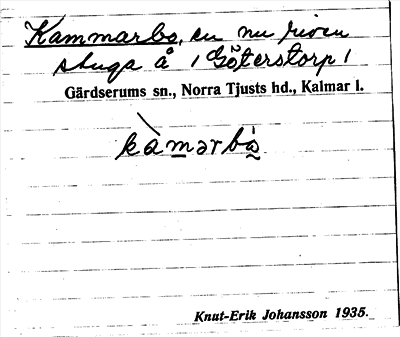 Kammarbo, en nu riven
stuga å / Göterstorp /
Gärdserums sn., Norra Tjusts hd., Kalmar l.
kàmərbò
Knut-Erik Johansson 1935.